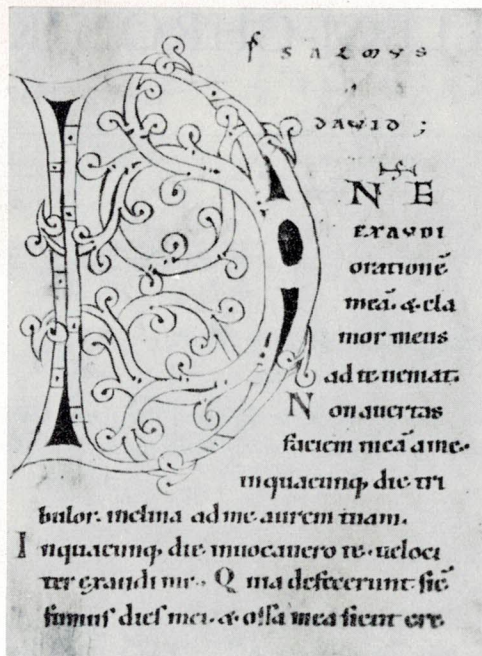 PSALMUS
DAVID;
D
NE
EXAUDI
orationē
meā. & cla
mor meus
ad te ueniat.
Non auertas
faciem meā a me.
in quacunq; die tri
bulor. inclina ad me aurem tuam.
In quacunq; die inuocauero te. ueloci
ter exaudi me. Quia defecerunt sic̄
fumus dies mei. & ossa mea sicut cre